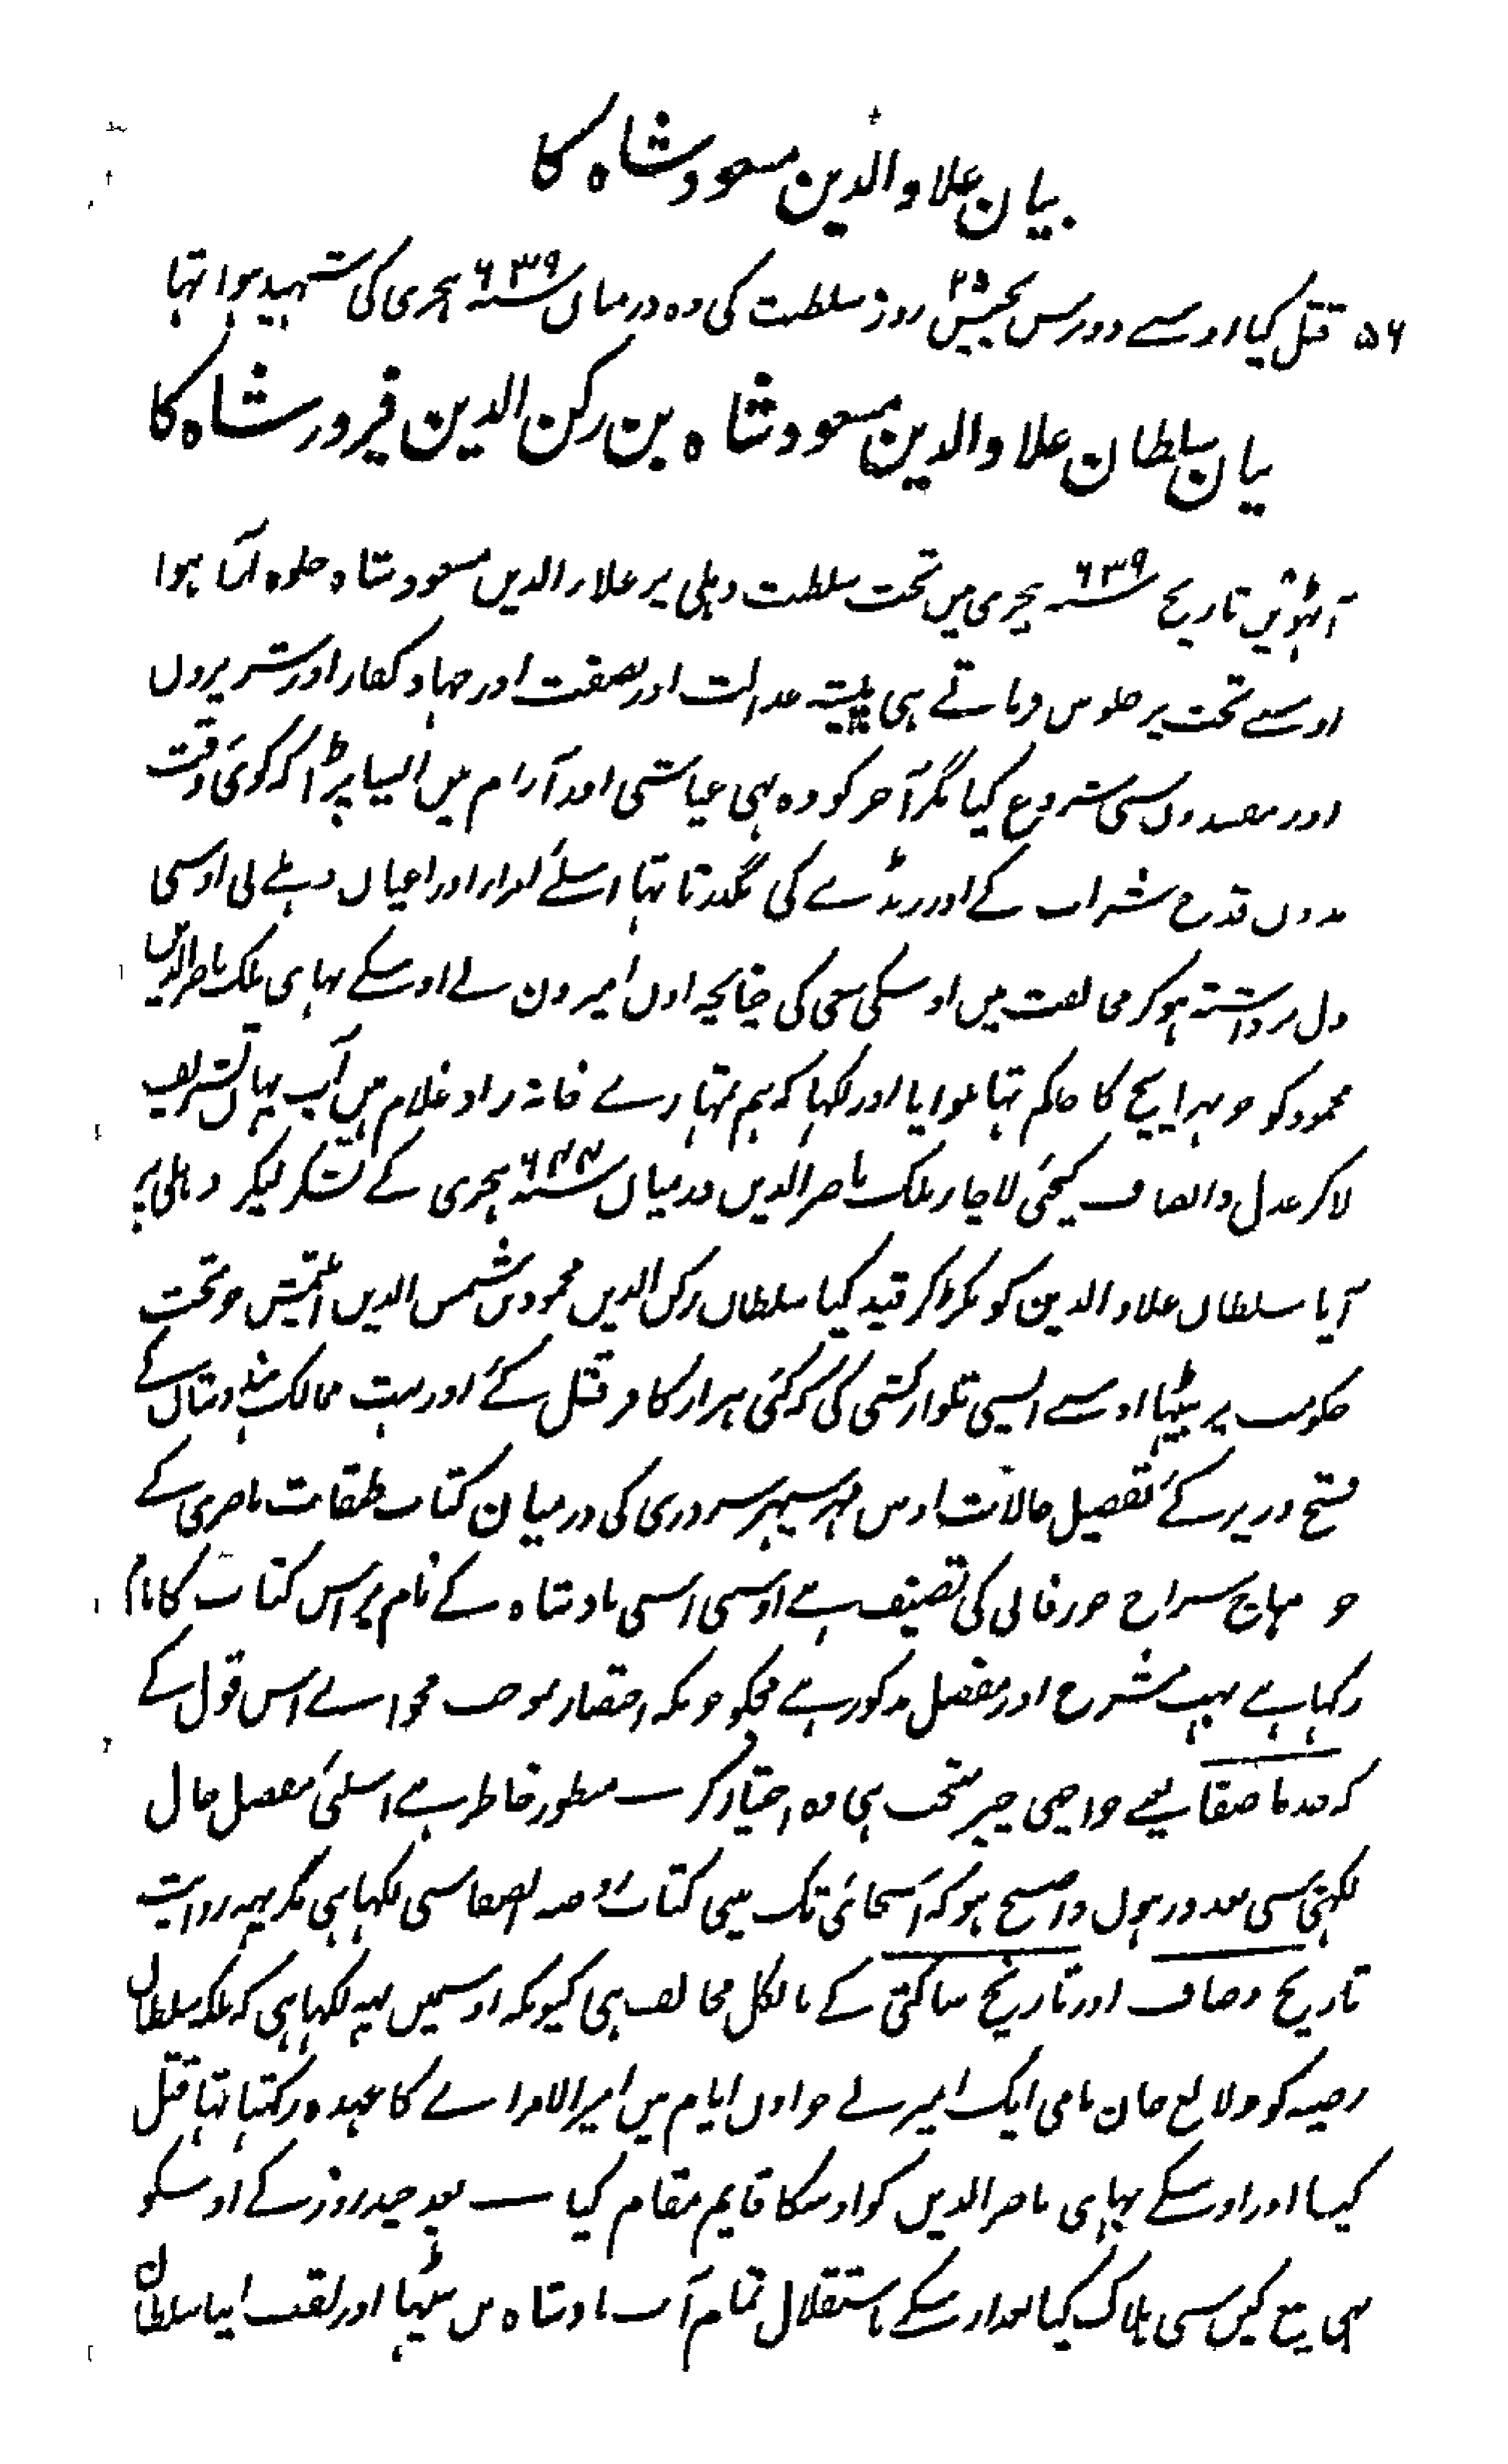 بیان علاوالدین مسعود شاہ کا
۵۶ قتل کیا اوسے دو برس پچیس ۲۵ روز سلطنت کی وہ درمیاں سنہ ۶۳۹ ہجری کی شہید ہوا تہا
بیان سلطان علاوالدین مسعود شاہ بن رکن الدین فیروز شاہ کا
آٹہویں تاریخ سنہ ۶۳۹ ہجری میں تخت سلطنت دہلی پر علاءالدین مسعود شاہ جلوہ آرا ہوا
اوسے تخت پر جلوس فرماتے ہی پیشہ عدالت اور نصفت اور جہاد کفار اور شریروں
اور مفسدوں سی شروع کیا مگر آخر کو وہ بہی عیاشی اور آرام میں ایسا پڑا کہ کوئی وقت
بدوں قدح شراب کے اور رنڈے کی نگذرتا تہا اسلئے امرا اور اعیاں دہلے نی اوسی
دل برداشتہ ہوکر مخالفت میں اوسکی سعی کی چنانچہ اول امیرون نے اوسکے بہای ملک ناصرالدین
محمود کو جو بہرایچ کا حاکم تہا بلوایا اور کہا کہ ہم تہارے خانہ زاد غلام ہیں آپ یہاں تشریف
لاکر عدل وانصاف کیجئی لاچار ملک ناصرالدین درمیاں سنہ ۶۴۴ ہجری کے لشکر لیکر دہلی پر
آیا سلطاں علاوالدین کو پکڑ کر قید کیا سلطاں رکن الدیں محمود بن شمس الدیں التمش جو تخت
حکومت پر بیٹہا اوسے ایسی تلوار کشی کی کہ کئی ہزار کافر قتل کئے اور بہت ممالک ہندوستاں کے
فتح وزیر کئے تفصیل حالات اوس مہر سپہر سروری کی درمیان کتاب طبقات ناصری کے
جو منہاج سراج جورقانی کی تصنیف ہے اوسی اسی بادشاہ کے نام پر اس کتاب کا نام
رکہا ہے بہت مشرح اور مفصل مذکور ہے مجکو جونکہ اختصار بموجب فحوائے اس قول کے
کہ خذ ما صفا یعے جو اچہی چیز منتخب ہی وہ اختیار کر منظور خاطر ہے اسلئی مفصل حال
لکہنی سی معذور ہوں واضح ہو کہ اسجائی تک مینی کتاب روضہ الصفا سی لکہا ہی مگر یہہ روایت
تاریخ وصاف اور تاریخ بناکتی کے بالکل مخالف ہی کیونکہ اوسمیں یہہ لکہا ہی کہ ملکہ سلطاں
رضیہ کو قتلغ خان نامی ایک امیر نے جو اون ایام میں امیرالامراے کا عہدہ رکہتا تہا قتل
کیا اور اوسکے بہای ناصرالدین کو اوسکا قایم مقام کیا بعد چند روز کے اوسکو
بہی تیغ کین سی ہلاک کیا بعد اوسکے باستقلال تمام آپ بادشاہ بن بیٹہا اور لقب اپنا سلطان